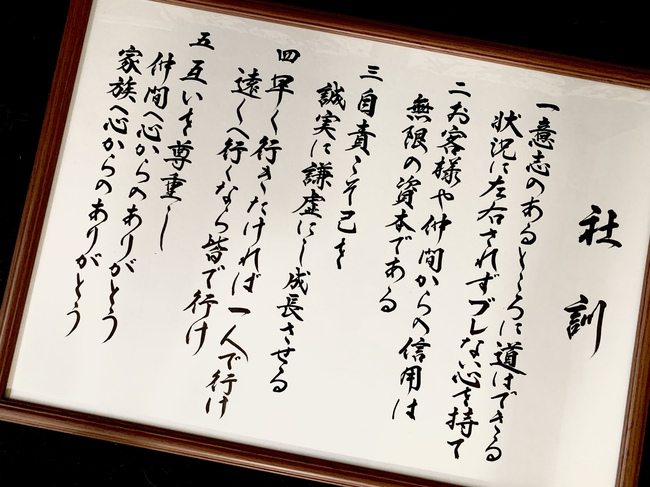 社訓
一 意志のあるところに道はできる
状況に左右されずブレない心を持て
二 お客様や仲間からの信用は
無限の資本である
三 自責こそ己を
誠実に謙虚にし成長させる
四 早く行きたければ一人で行け
遠くへ行くなら皆で行け
五 互いを尊重し
仲間へ心からのありがとう
家族へ心からのありがとう